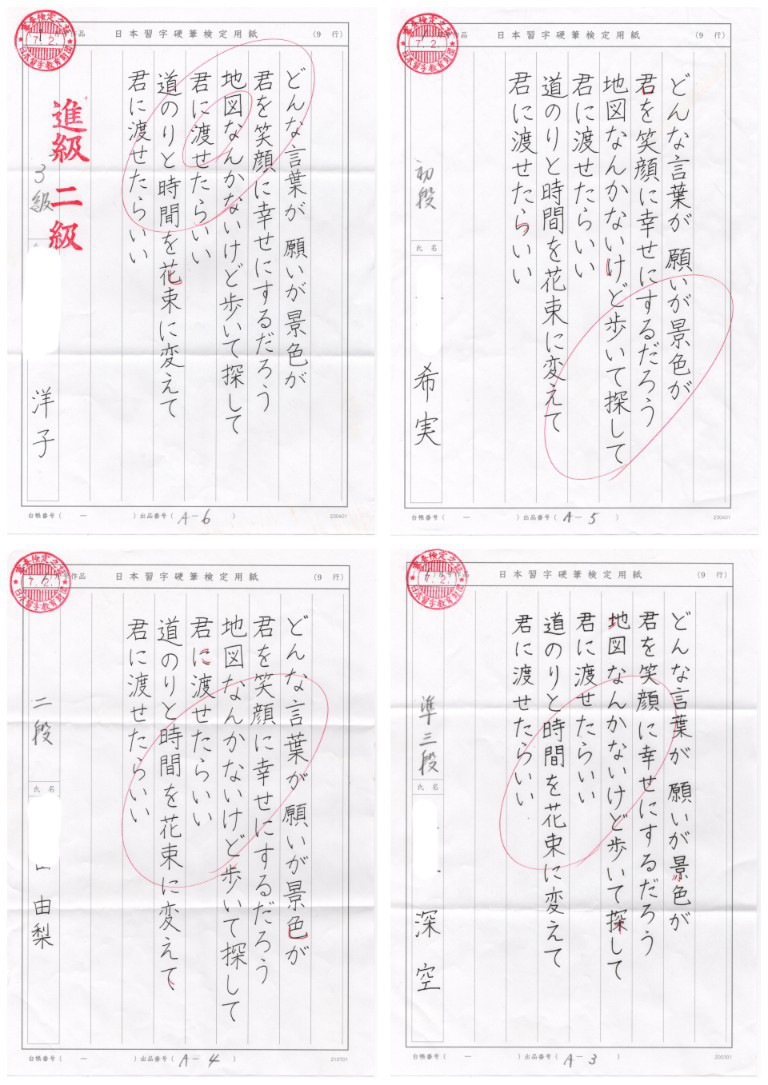 作品 日本習字硬筆検定用紙 (9 行)
7.2.
日本習字教育財団
どんな言葉が 願いが景色が
君を笑顔に幸せにするだろう
地図なんかないけど歩いて探して
君に渡せたらいい
道のりと時間を花束に変えて
君に渡せたらいい
進級 二級
3級
洋子
台帳番号( ー )出品番号( A-6 )
日本習字硬筆検定用紙 (9 行)
7.2.
日本習字教育財団
どんな言葉が 願いが景色が
君を笑顔に幸せにするだろう
地図なんかないけど歩いて探して
君に渡せたらいい
道のりと時間を花束に変えて
君に渡せたらいい
初段
氏名
希実
台帳番号( ー )出品番号( A-5 )
作品 日本習字硬筆検定用紙 (9 行)
7.2.
日本習字教育財団
どんな言葉が 願いが景色が
君を笑顔に幸せにするだろう
地図なんかないけど歩いて探して
君に渡せたらいい
道のりと時間を花束に変えて
君に渡せたらいい
二段
氏名
由梨
台帳番号( ー )出品番号( A-4 )
日本習字硬筆検定用紙 (9 行)
7.2.
日本習字教育財団
どんな言葉が 願いが景色が
君を笑顔に幸せにするだろう
地図なんかないけど歩いて探して
君に渡せたらいい
道のりと時間を花束に変えて
君に渡せたらいい
準三段
氏名
深空
台帳番号( ー )出品番号( A-3 )